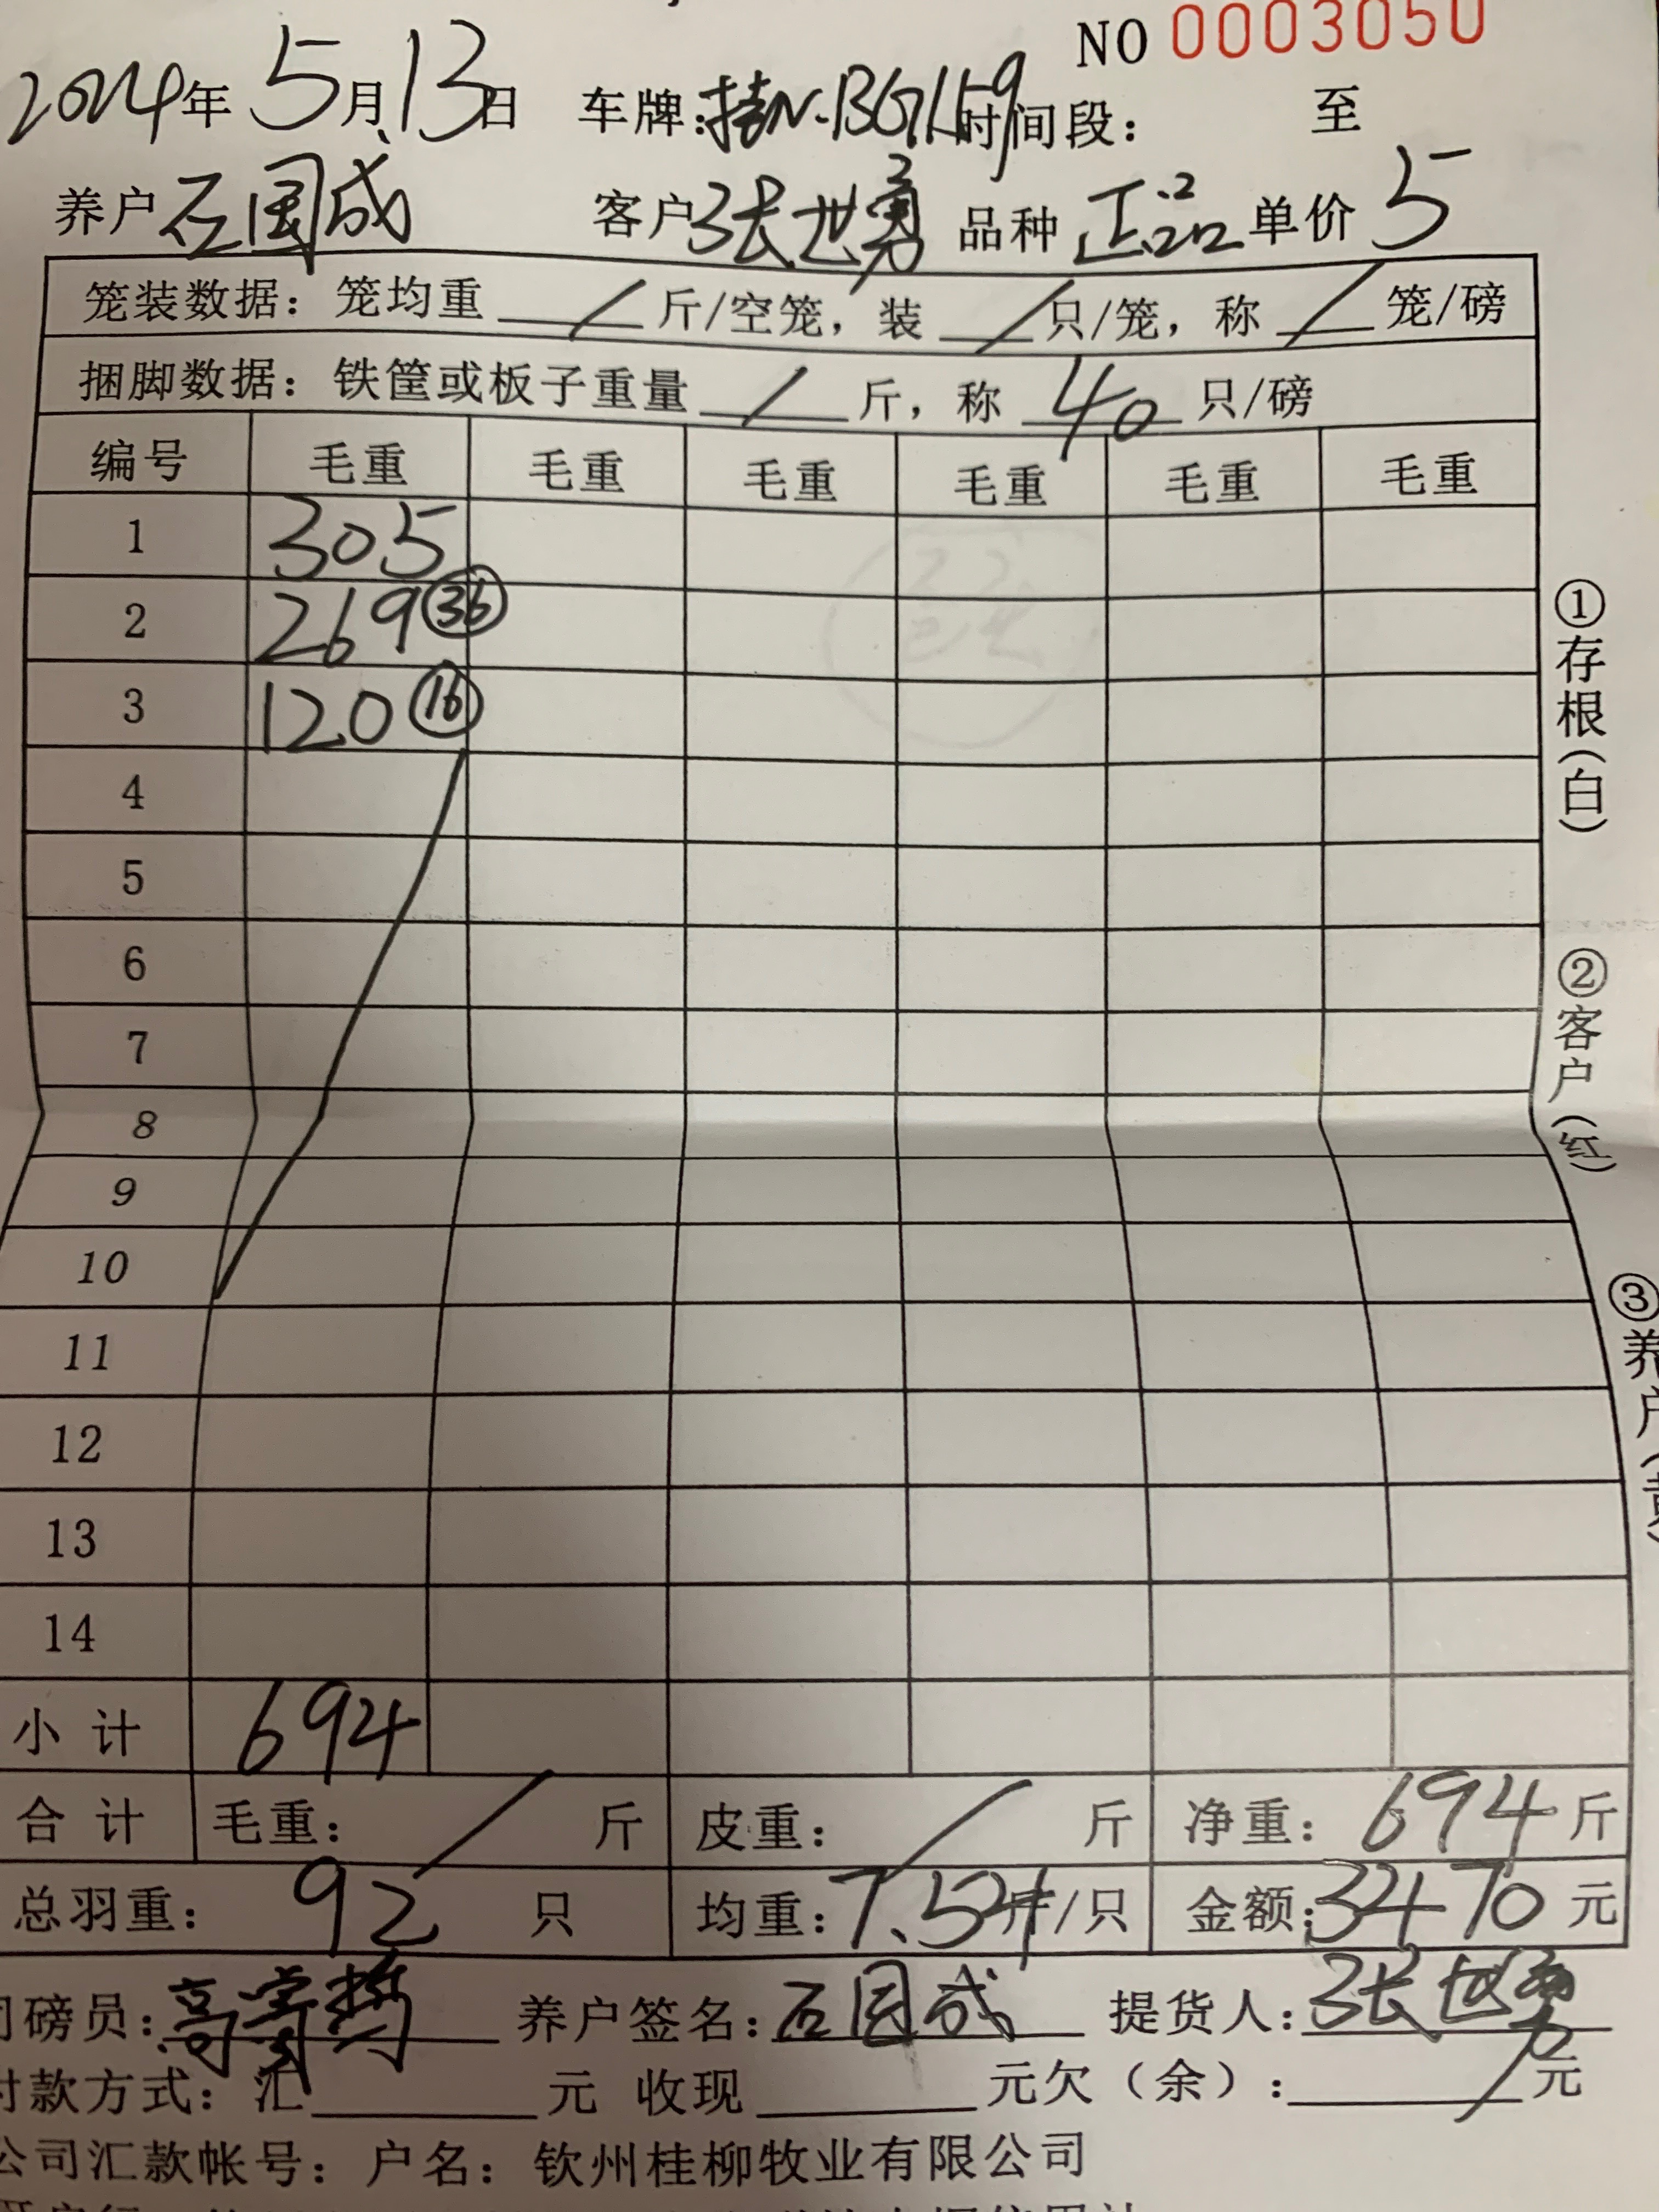 NO 0003050
2024年 5月13日 车牌:桂N·BG1159 时间段: 至
养户 石国成 客户 张世勇 品种 正品 单价 5
笼装数据: 笼均重 / 斤/空笼, 装 / 只/笼, 称 / 笼/磅
捆脚数据: 铁筐或板子重量 / 斤, 称 40 只/磅
编号 毛重 毛重 毛重 毛重 毛重 毛重
1 305
2 269 36
3 120 16
4
5
6
7
8
9
10
11
12
13
14
小计 694
合计 毛重: / 斤 皮重: / 斤 净重: 694 斤
总羽重: 92 只 均重: 7.54 斤/只 金额: 3470 元
磅员: 养户签名: 石国成 提货人: 张世勇
付款方式: 汇 元 收现 元欠(余): / 元
公司汇款帐号: 户名: 钦州桂柳牧业有限公司
①存根(白)
②客户(红)
③养户(黄)